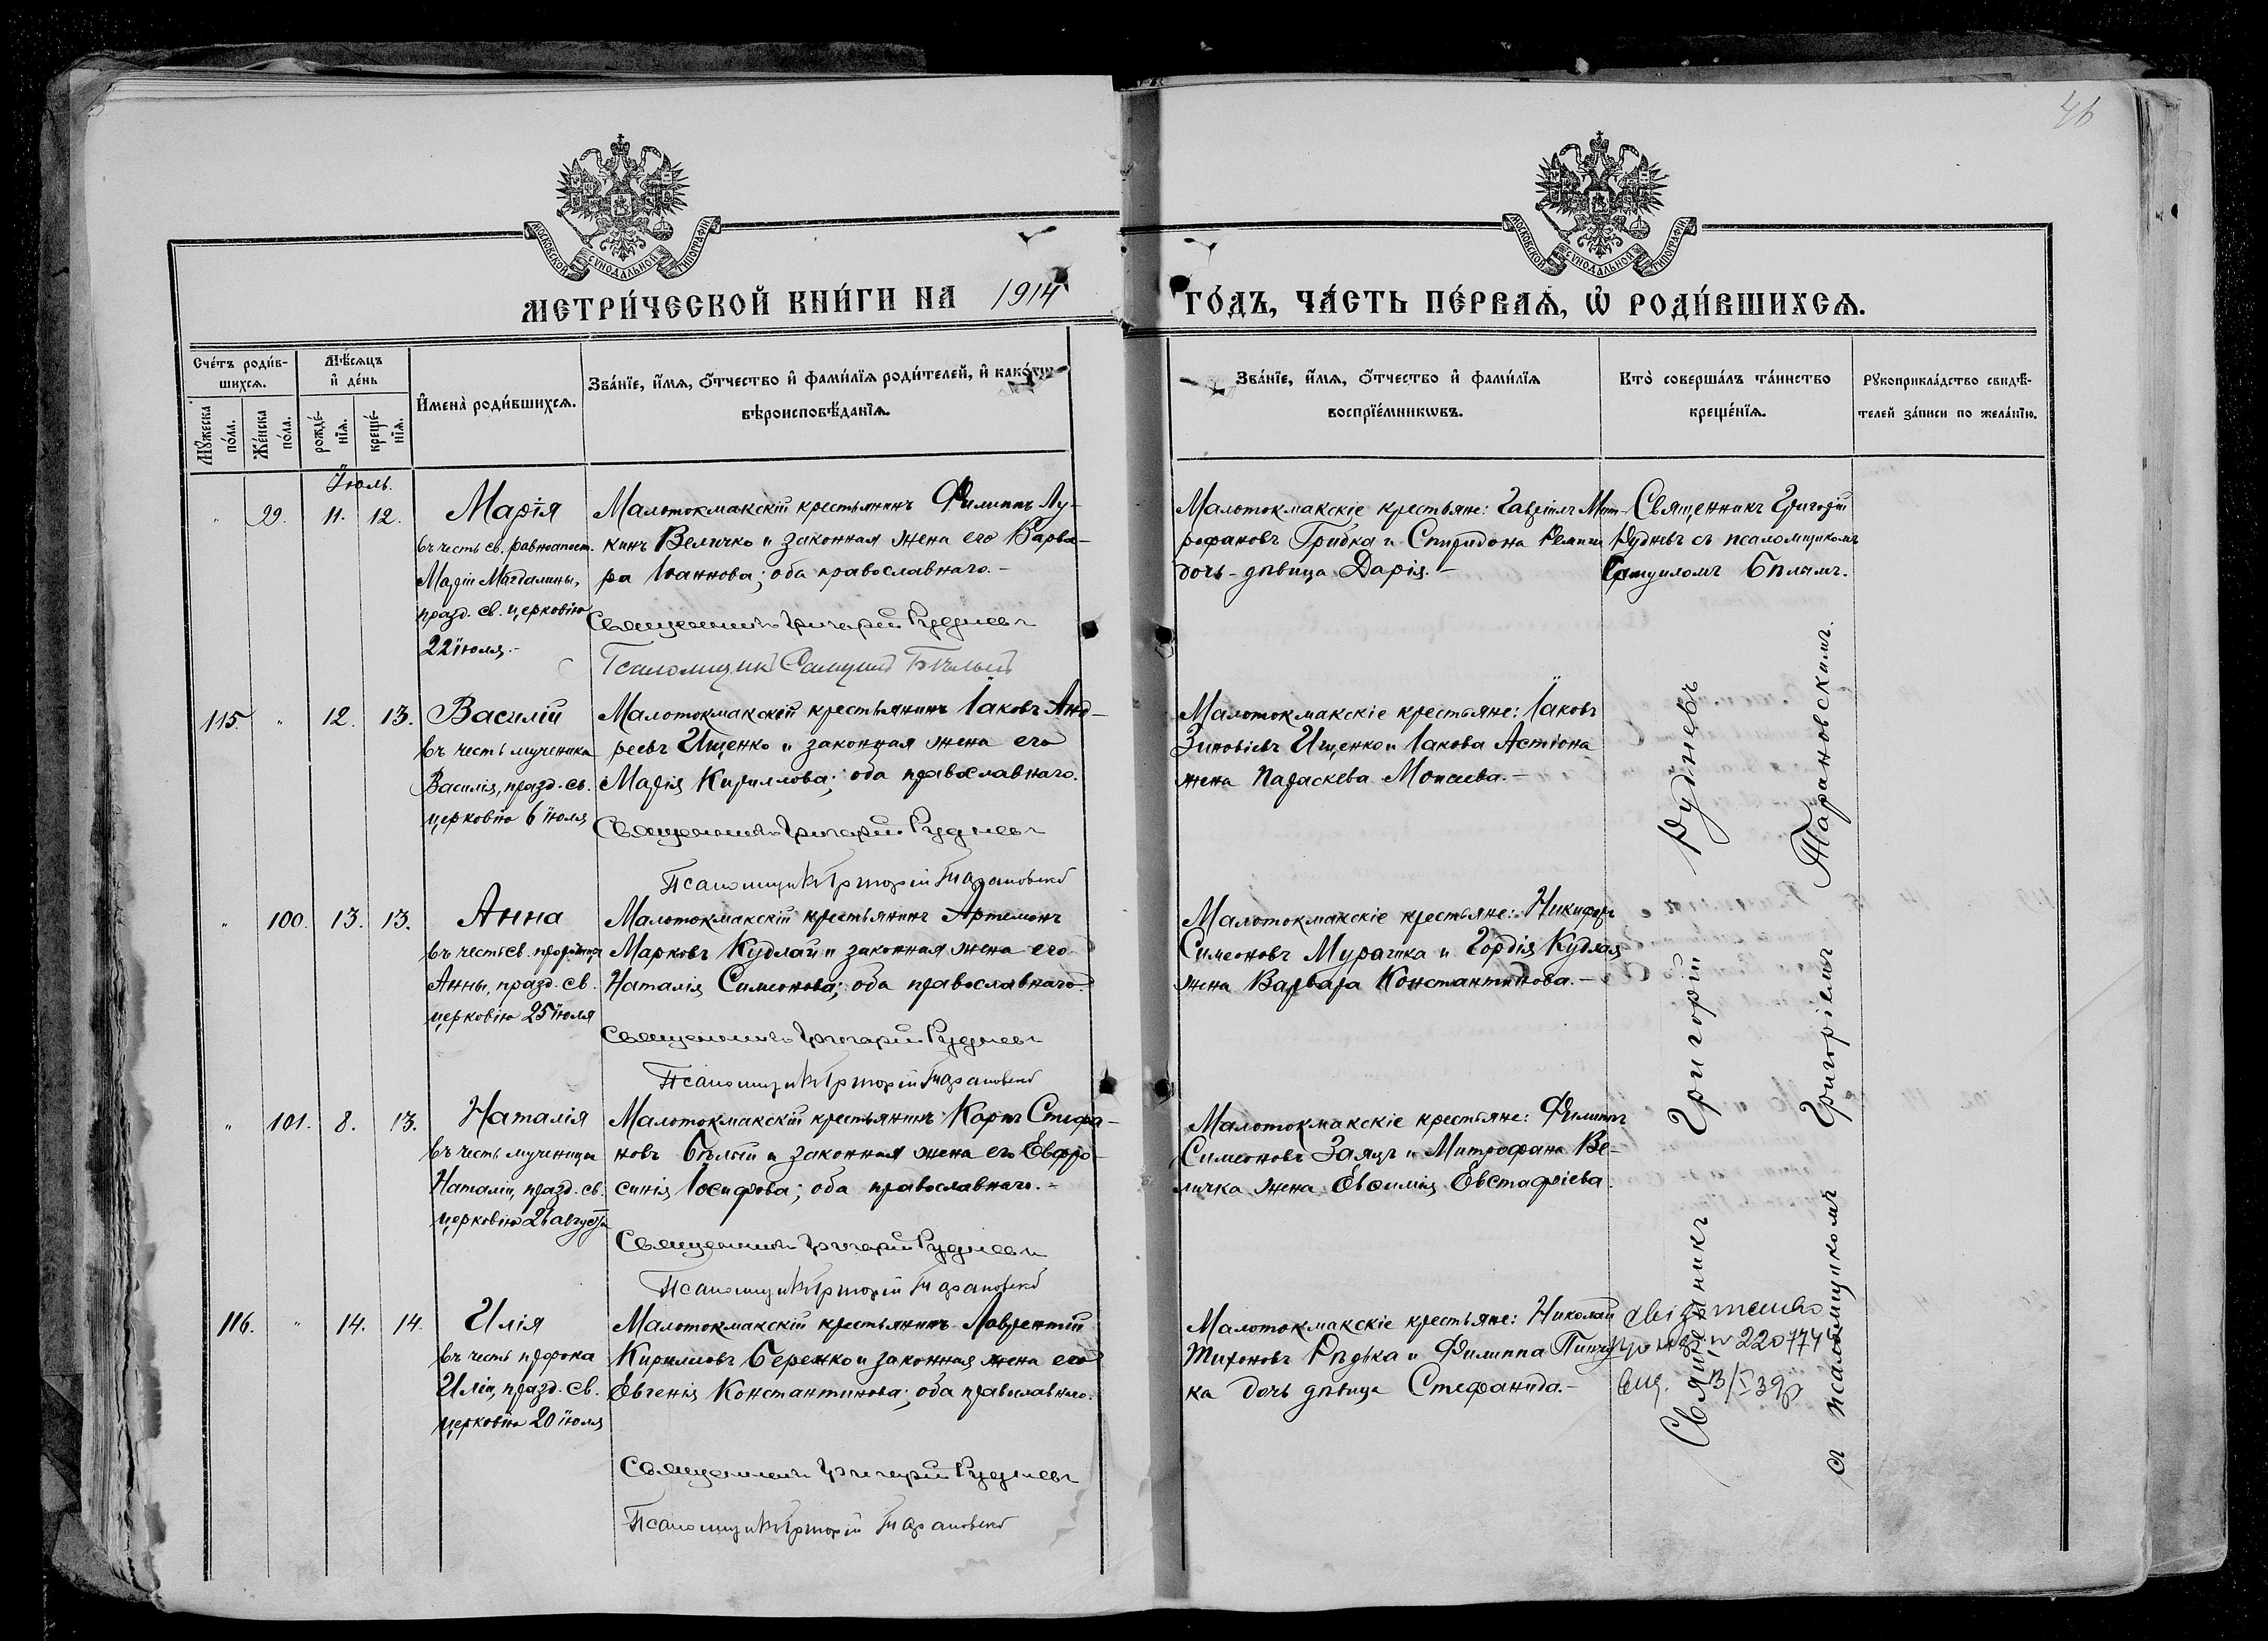 46
МОСКОВСКОЙ СѴНОДАЛЬНОЙ ТИПОГРАФІИ
МОСКОВСКОЙ СѴНОДАЛЬНОЙ ТИПОГРАФІИ
МЕТРИ́ЧЕСКОЙ КНИ́ГИ НА 1914 ГО́ДЪ, ЧА́СТЬ ПЕ́РВАѦ, Ѡ҆ РОДИ́ВШИХСѦ.
Сче́тъ роди́в-
шихсѧ.
Мѣ́сѧцъ
и҆ де́нь
Мꙋ́жеска
по́ла.
Же́нска
по́ла.
рожде́-
нїѧ.
креще́-
нїѧ.
И҆мена̀ роди́вшихсѧ.
Зва́нїе, и҆́мѧ, ѻ҆́тчество и҆ фами́лїѧ роди́телей, и҆ како́гѡ
вѣроисповѣ́данїѧ.
Зва́нїе, и҆́мѧ, ѻ҆́тчество и҆ фами́лїѧ
воспрїе́мникѡвъ.
Кто̀ соверша́лъ та́инство
креще́нїѧ.
Рꙋкоприкла́дство свидѣ́-
телей за́писи по жела́нїю.
Іюль.
" 99. 11. 12.
Марія
въ честь св. равноапост.
Маріи Магдалины,
празд. св. церковію
22 іюля.-
Малотокмакскій крестьянинъ Филиппъ Лу-
кинъ Величко и законная жена его Варва-
ра Іоаннова; оба православнаго.-
Священникъ Григорій Рудневъ
Псаломщикъ Самуилъ Бѣлый
Малотокмакскіе крестьяне: Гавріилъ Мит-
рофановъ Гридка и Спиридона
дочь-дѣвица Дарія.-
Священникъ Григорій
Рудневъ съ псаломщикомъ
Самуиломъ Бѣлымъ.
115. " 12. 13.
Василій
въ честь мученика
Василія, празд. св.
церковію 6 іюля
Малотокмакскій крестьянинъ Іаковъ Анд-
реевъ Ищенко и законная жена его
Марія Кириллова; оба православнаго.
Священникъ Григорій Рудневъ
Псаломщикъ Григорій Тарановскій
Малотокмакскіе крестьяне: Іаковъ
Зиновіевъ Ищенко и Іакова Астіона
жена Параскева Моисеева.-
" 100. 13. 13.
Анна
въ честь св. пророчицы
Анны, празд. св.
церковію 25 іюля
Малотокмакскій крестьянинъ Артемонъ
Марковъ Кудлай и законная жена его
Наталія Симеонова; оба православнаго.
Священникъ Григорій Рудневъ
Псаломщикъ Григорій Тарановскій
Малотокмакскіе крестьяне: Никифоръ
Симеоновъ Мурашка и Гордія Кудлая
жена Варвара Константинова.-
" 101. 8. 13.
Наталія
въ честь мученицы
Наталіи, празд. св.
церковію 26 августа
Малотокмакскій крестьянинъ Карпъ Стефа-
новъ Бѣлый и законная жена его Евфро-
синія Іосифова; оба православнаго.-
Священникъ Григорій Рудневъ
Псаломщикъ Григорій Тарановскій
Малотокмакскіе крестьяне: Филиппъ
Симеоновъ Заяцъ и Митрофана Ве-
личка жена Евѳимія Евстафіева.
116. " 14. 14.
Илія
въ честь пророка
Иліи, празд. св.
церковію 20 іюля
Малотокмакскій крестьянинъ Лаврентій
Кирилловъ Бережко и законная жена его
Евгенія Константинова; оба православнаго.
Священникъ Григорій Рудневъ
Псаломщикъ Григорій Тарановскій
Малотокмакскіе крестьяне: Николай
Тихоновъ Рѣдька и Филиппа
ка дочь дѣвица Стефанида.-
13/I 39р
Священникъ Григорій Рудневъ
съ псаломщикомъ Григоріемъ Тарановскимъ.